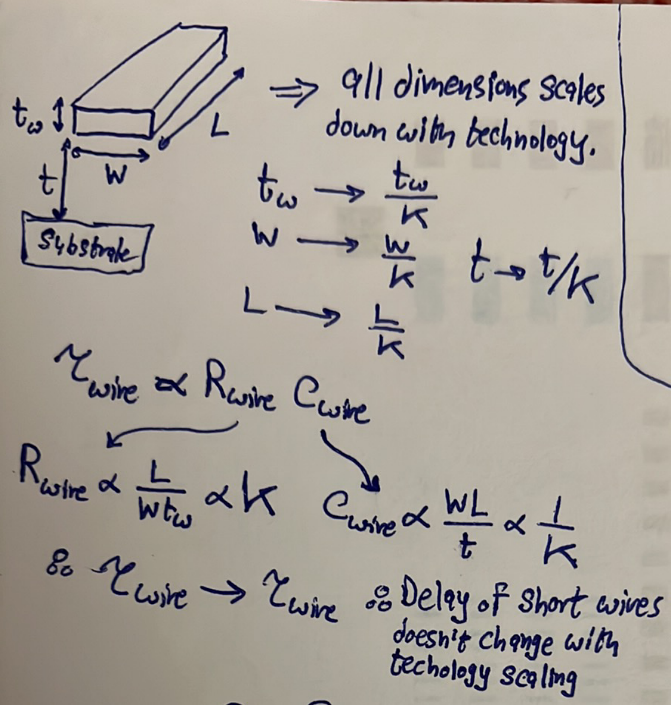 ⇒ all dimensions scales
down with technology.
t_w
L
W
t
Substrate
t_w → t_w/K
W → W/K
t → t/K
L → L/K
τ_wire ∝ R_wire C_wire
R_wire ∝ L/(W t_w) ∝ K
C_wire ∝ WL/t ∝ 1/K
∴ τ_wire → τ_wire
∴ Delay of short wires
doesn't change with
techology scaling